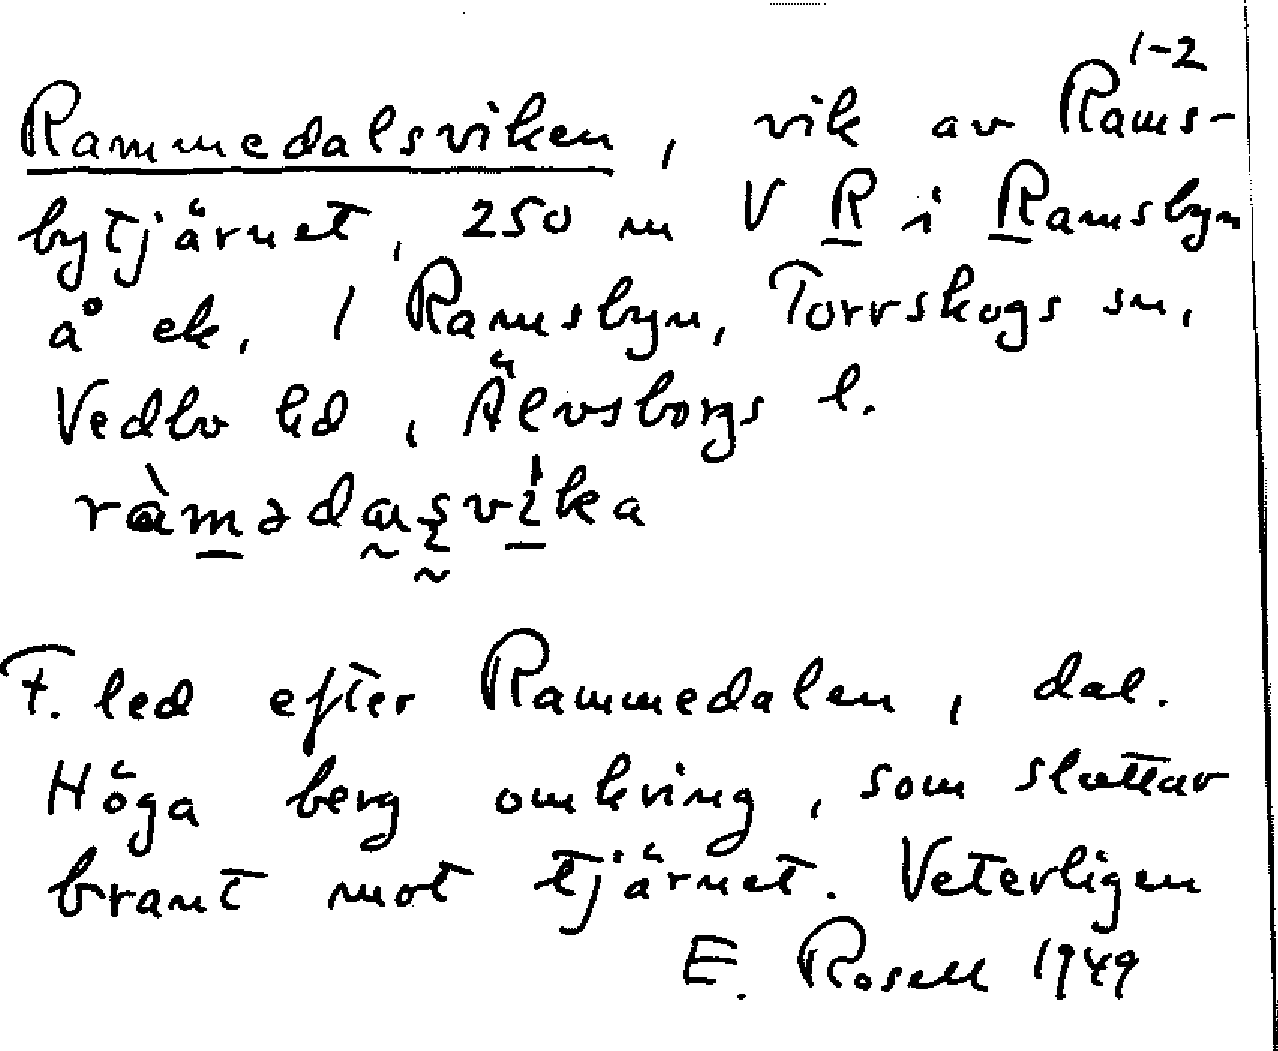 1-2
Rammedalsviken, vik av Rams-
bytjärnet, 250 m V R i Ramsbyn
å ek. 1 Ramsbyn, Torrskogs sn,
Vedbo hd, Älvsborgs l.
F. led efter Rammedalen, dal.
Höga berg omkring, som sluttar
brant mot tjärnet. Veterligen
E. Rosell 1949